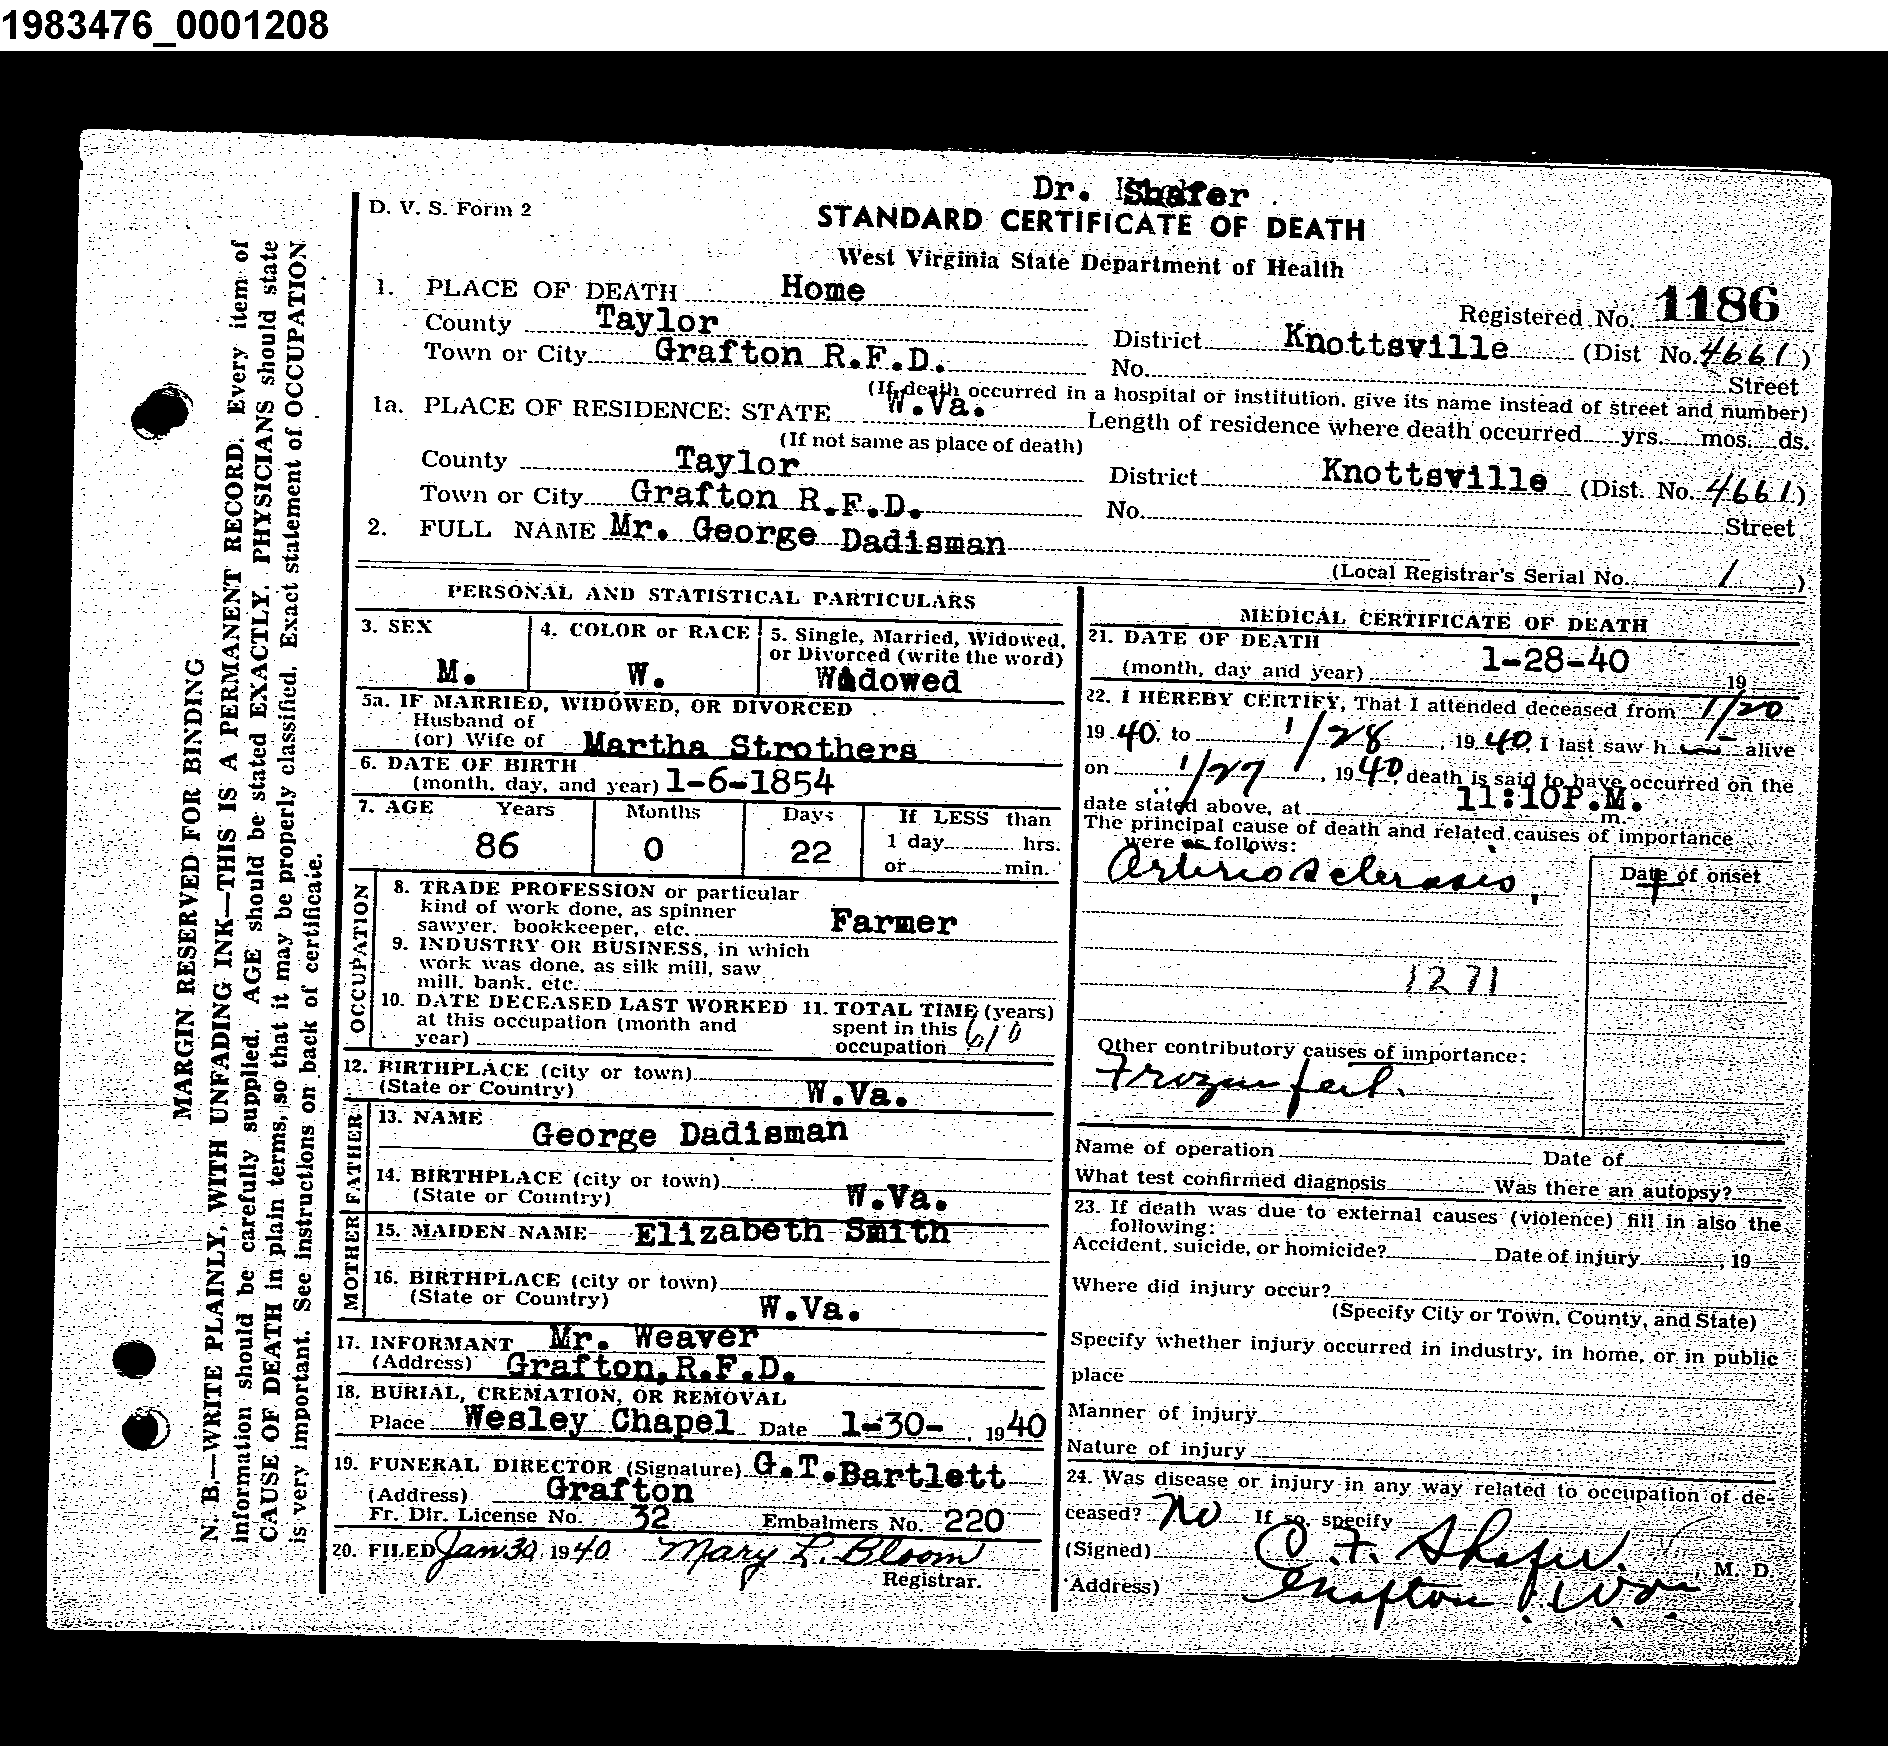 1983476_0001208
Dr. Shafer
D. V. S. Form 2
STANDARD CERTIFICATE OF DEATH
West Virginia State Department of Health
1. PLACE OF DEATH Home
Registered No. 1186
County Taylor
District Knottsville (Dist No. 4661)
Town or City Grafton R.F.D.
No. Street
(If death occurred in a hospital or institution, give its name instead of street and number)
1a. PLACE OF RESIDENCE: STATE W.Va. Length of residence where death occurred yrs. mos. ds.
(If not same as place of death)
County Taylor
District Knottsville (Dist. No. 4661)
Town or City Grafton R.F.D.
No. Street
2. FULL NAME Mr. George Dadisman
(Local Registrar's Serial No. 1)
PERSONAL AND STATISTICAL PARTICULARS
3. SEX
M.
4. COLOR or RACE
W.
5. Single, Married, Widowed,
or Divorced (write the word)
Widowed
5a. IF MARRIED, WIDOWED, OR DIVORCED
Husband of
(or) Wife of Martha Strothers
6. DATE OF BIRTH
(month, day, and year) 1-6-1854
7. AGE Years Months Days If LESS than
86 0 22 1 day hrs.
or min.
OCCUPATION
8. TRADE PROFESSION or particular
kind of work done, as spinner
sawyer, bookkeeper, etc. Farmer
9. INDUSTRY OR BUSINESS, in which
work was done, as silk mill, saw
mill, bank, etc.
10. DATE DECEASED LAST WORKED
at this occupation (month and
year)
11. TOTAL TIME (years)
spent in this
occupation
12. BIRTHPLACE (city or town)
(State or Country) W.Va.
FATHER
13. NAME George Dadisman
14. BIRTHPLACE (city or town)
(State or Country) W.Va.
MOTHER
15. MAIDEN NAME Elizabeth Smith
16. BIRTHPLACE (city or town)
(State or Country) W.Va.
17. INFORMANT Mr. Weaver
(Address) Grafton, R.F.D.
18. BURIAL, CREMATION, OR REMOVAL
Place Wesley Chapel Date 1-30-, 1940
19. FUNERAL DIRECTOR (Signature) G.T.Bartlett
(Address) Grafton
Fr. Dir. License No. 32 Embalmers No. 220
20. FILED Jan 30 1940 Mary L. Bloom
Registrar.
MEDICAL CERTIFICATE OF DEATH
21. DATE OF DEATH
(month, day and year) 1-28-40 19
22. I HEREBY CERTIFY, That I attended deceased from 1/20
1940, to 1/28, 1940, I last saw h alive
on 1/27, 1940, death is said to have occurred on the
date stated above, at 11:10P.M. m.
The principal cause of death and related causes of importance
were as follows:
Date of onset
Arteriosclerosis,
1271
Other contributory causes of importance:
Frozen feet.
Name of operation Date of
What test confirmed diagnosis Was there an autopsy?
23. If death was due to external causes (violence) fill in also the
following:
Accident, suicide, or homicide? Date of injury, 19
Where did injury occur?
(Specify City or Town, County, and State)
Specify whether injury occurred in industry, in home, or in public
place
Manner of injury
Nature of injury
24. Was disease or injury in any way related to occupation of de-
ceased? No If so, specify
(Signed) C. F. Shafer, M. D.
Address) Grafton, W.Va.
MARGIN RESERVED FOR BINDING
N. B.—WRITE PLAINLY, WITH UNFADING INK—THIS IS A PERMANENT RECORD. Every item of
information should be carefully supplied. AGE should be stated EXACTLY. PHYSICIANS should state
CAUSE OF DEATH in plain terms, so that it may be properly classified. Exact statement of OCCUPATION
is very important. See instructions on back of certificate.